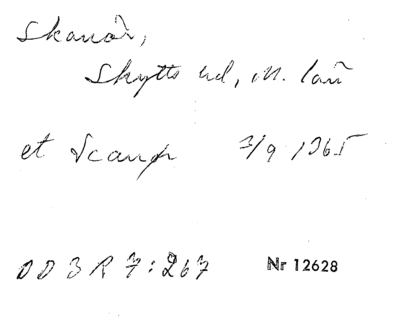 Skanör,
Skytts hd, M. län
et Scamp 3/9 1965
DDBR7:267 Nr 12628